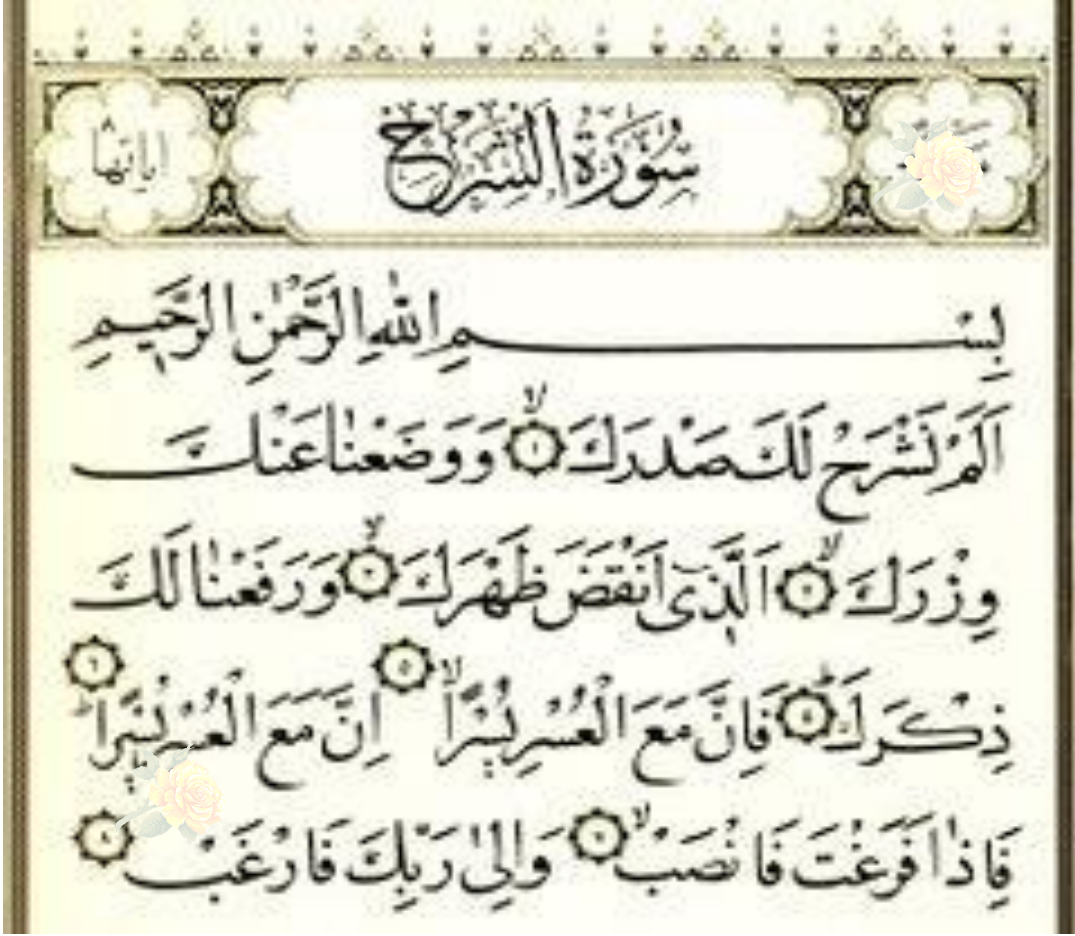 سُوْرَةُ الشَّرْحِ
اٰيَاتُهَا ٨
بِسْمِ اللّٰهِ الرَّحْمٰنِ الرَّحِيْمِ
اَلَمْ نَشْرَحْ لَكَ صَدْرَكَ ۙ﴿١﴾ وَوَضَعْنَا عَنْكَ
وِزْرَكَ ۙ﴿٢﴾ اَلَّذِيْٓ اَنْقَضَ ظَهْرَكَ ۙ﴿٣﴾ وَرَفَعْنَا لَكَ
ذِكْرَكَ ؕ﴿٤﴾ فَاِنَّ مَعَ الْعُسْرِ يُسْرًا ۙ﴿٥﴾ اِنَّ مَعَ الْعُسْرِ يُسْرًا ؕ﴿٦﴾
فَاِذَا فَرَغْتَ فَانْصَبْ ۙ﴿٧﴾ وَاِلٰى رَبِّكَ فَارْغَبْ ﴿٨﴾